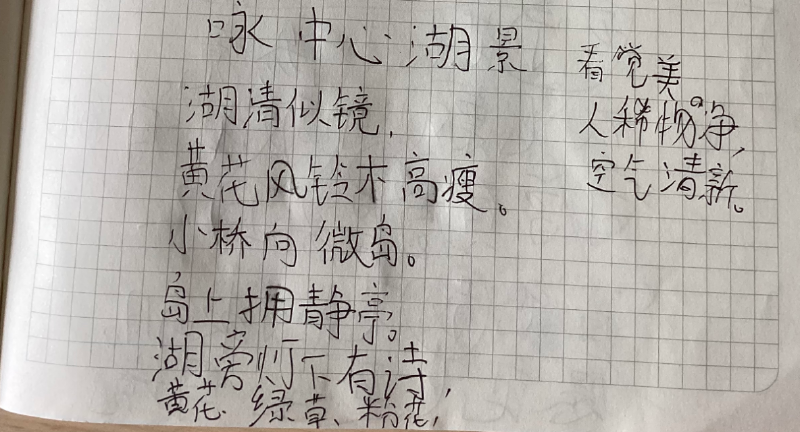 咏 中心湖景
湖清似镜,
黄花风铃木高瘦。
小桥向微岛。
岛上拥静亭。
湖旁灯下有诗,
黄花、绿草、粉花,
看觉美。
人稀物净,
空气清新。